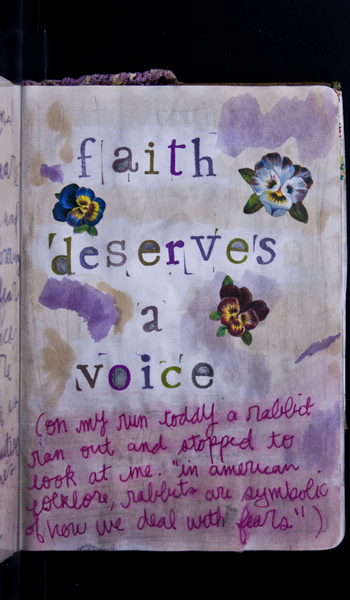 faith
deserves
a
voice
(on my run today a rabbit
ran out and stopped to
look at me. "in american
folklore, rabbits are symbolic
of how we deal with fears.")